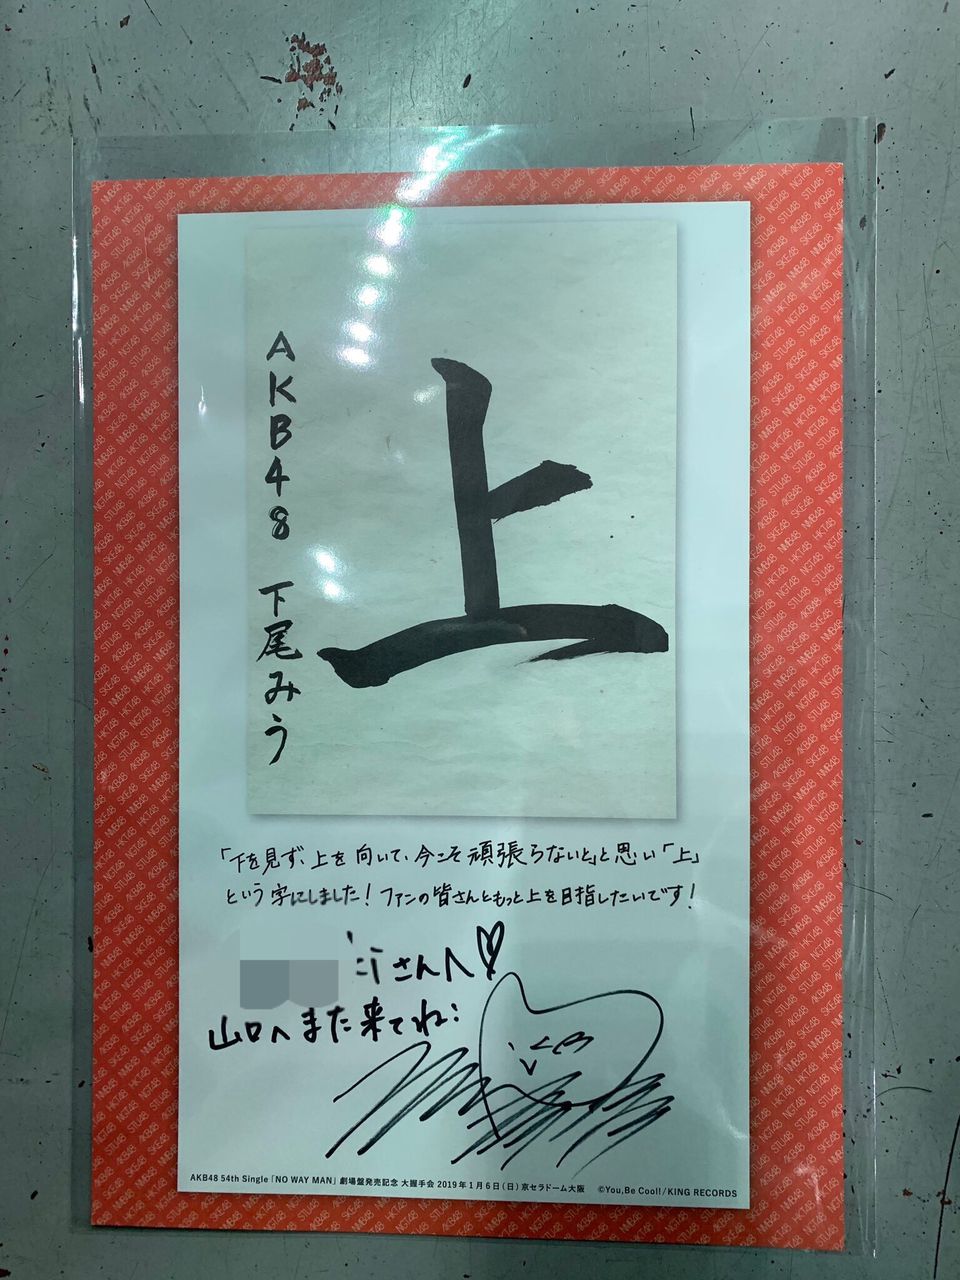 上
AKB48 下尾みう
「下を見ず、上を向いて、今こそ頑張らないと」と思い「上」
という字にしました！ファンの皆さんともっと上を目指したいです！
さんへ♡
山口へまた来てね:
AKB48 54th Single「NO WAY MAN」劇場盤発売記念 大握手会 2019年1月6日(日)京セラドーム大阪 ©You,Be Cool!/KING RECORDS